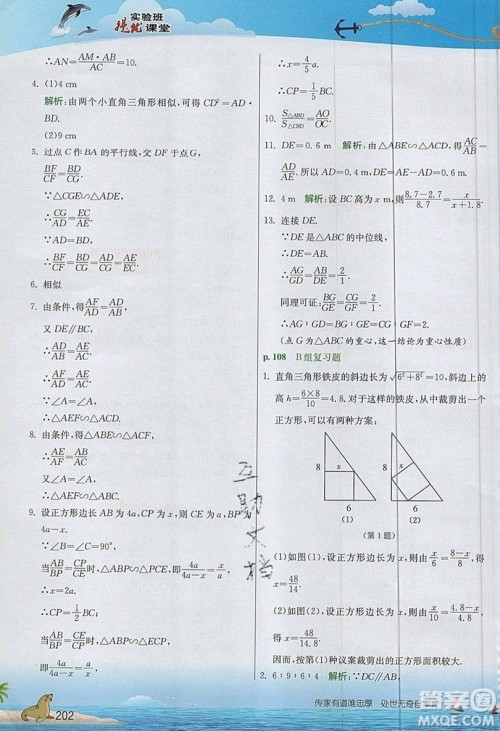 实验班
提优课堂
∴AN=\frac{AM·AB}{AC}=10.
4. (1)4 cm
解析:由两个小直角三角形相似,可得 CD²=AD·
BD.
(2)9 cm
5. 过点 C 作 BA 的平行线,交 DF 于点 G,
\frac{BF}{CF}=\frac{BD}{CG}.
∵△CGE∽△ADE,
∴\frac{CG}{AD}=\frac{EC}{AE}.
∵AD=BD,
∴\frac{BF}{CF}=\frac{BD}{CG}=\frac{AD}{CG}=\frac{AE}{EC}.
6. 相似
7. 由条件,得\frac{AF}{AD}=\frac{AD}{AB}.
又 DE∥BC,
∴\frac{AD}{AB}=\frac{AE}{AC}.
∴\frac{AF}{AD}=\frac{AE}{AC}.
∵∠A=∠A,
∴△AEF∽△ACD.
8. 由条件,得\frac{AD}{AE}=\frac{AB}{AC}.
又∠A=∠A,
∴△ABD∽△ACE.
9. 设正方形边长 AB 为 4a, CP 为 x,则 CE 为 a, BP 为
4a-x.
∵∠B=∠C=90°,
∴\frac{AB}{BP}=\frac{CP}{CE}时,△ABP∽△PCE,即\frac{4a}{4a-x}=\frac{x}{a}.
∴x=2a.
∴CP=\frac{1}{2}BC.
当\frac{AB}{BP}=\frac{CE}{CP}时,△ABP∽△ECP,
即\frac{4a}{4a-x}=\frac{a}{x}.
∴x=\frac{4}{5}a.
∴CP=\frac{1}{5}BC.
10. \frac{S_{△ABD}}{S_{△CBD}}=\frac{AO}{OC}.
11. DE=0.6 m 解析:由△ABE∽△CDE,得\frac{AB}{CD}=
\frac{BE}{DE}.∴DE=0.6 m.
12. 4 m 解析:设树高为 x m,则\frac{8.7-2.7}{8.7}=\frac{x}{x+1.8}.
13. 连接 DE.
∵DE 是△ABC 的中位线,
∴\frac{AG}{GD}=\frac{AB}{DE}=\frac{2}{1}.
同理可证:\frac{BG}{GE}=\frac{2}{1}.
(点 G 为△ABC 的重心,这一结论为重心定理)
p.108 B组复习题
1. 直角三角形铁皮的斜边长为\sqrt{6²+8²}=10,斜边上的
高 h=\frac{6×8}{10}=4.8,对于这样的铁皮,可以裁剪出一个
正方形,可以有如下两种方案:
8 x 6 (1)
8 x 6 (2)
(第 1 题)
(1)如图(1),设正方形边长为 x,则由\frac{x}{6}=\frac{8-x}{8},得
x=\frac{48}{14}.
(2)如图(2),设正方形边长为 x,则由\frac{x}{10}=\frac{4.8-x}{4.8},得
x=\frac{48}{14.8}.
因而,按第(1)种方案裁剪出的正方形面积较大.
2. 6:9:6:4 解析:∵DC∥AB,
互助文档
传家有道唯忠厚 处世无奇但
202